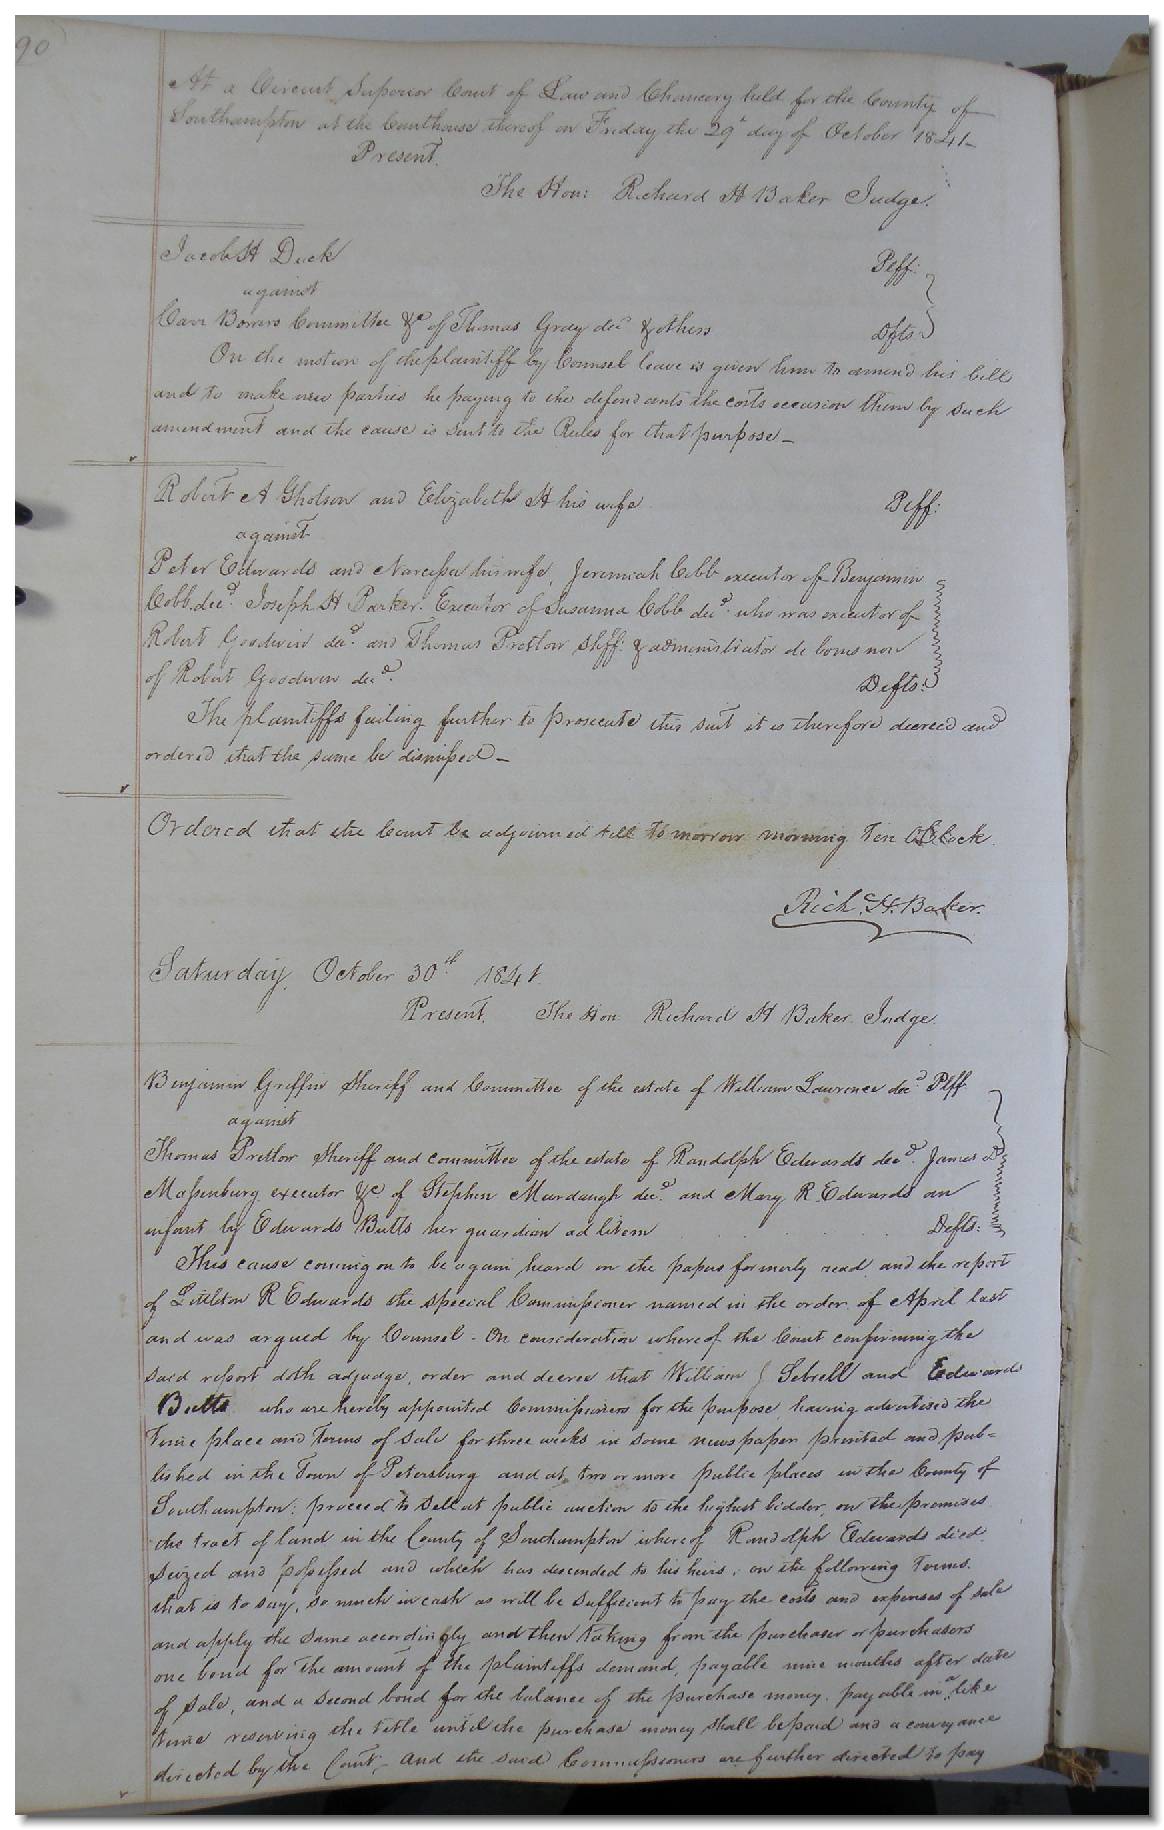 90
At a Circuit Superior Court of Law and Chancery held for the County of
Southampton at the Courthouse thereof on Friday the 29th day of October 1841-
Present.
The Hon: Richard H Baker Judge.
Jacob H Duck Plff:
against
Carr Bowers Committee &c of Thomas Gray decd & others Dfts:
On the motion of the plaintiff by Counsel leave is given him to amend his bill
and to make new parties he paying to the defendants the costs occasion them by such
amendment and the cause is sent to the Rules for that purpose_
Robert A Gholson and Elizabeth H his wife Plff:
against
Peter Edwards and Narcissa his wife, Jeremiah Cobb executor of Benjamin
Cobb decd. Joseph H Parker. Executor of Susanna Cobb decd. who was executor of
Robert Goodwin decd. and Thomas Pretlow Shff: & administrator de bonis non
of Robert Goodwin decd. Defts:
The plaintiffs failing further to prosecute this suit it is therefore decreed and
ordered that the same be dismissed_
Ordered that the Court be adjourned till tomorrow morning Ten OClock.
Rich. H. Baker.
Saturday, October 30th 1841.
Present. The Hon Richard H Baker Judge.
Benjamin Griffin Sheriff and Committee of the estate of William Lawrence decd Plff
against
Thomas Pretlow Sheriff and committee of the estate of Randolph Edwards decd. James D
Massenburg executor &c of Stephen Murdaugh decd. and Mary R Edwards an
infant by Edwards Butts her guardian ad litem Defts:
This cause coming on to be again heard on the papers formerly read, and the report
of Littleton R Edwards the special Commissioner named in the order of April last
and was argued by Counsel - On consideration whereof the Court confirming the
said report doth adjudge, order and decree that William J Sebrell and Edwards
Butts who are hereby appointed Commissioners for the purpose, having advertised the
time place and terms of sale for three weeks in some newspaper printed and pub=
lished in the Town of Petersburg and at two or more public places in the County of
Southampton: proceed to sell at public auction to the highest bidder, on the premises
the tract of land in the County of Southampton whereof Randolph Edwards died
seized and possessed and which has descended to his heirs, on the following terms.
that is to say, so much in cash as will be sufficient to pay the costs and expenses of sale
and apply the same accordingly and then taking from the purchaser or purchasers
one bond for the amount of the plaintiffs demand, payable nine months after date
of sale, and a second bond for the balance of the purchase money, payable in a like
time reserving the title until the purchase money shall be paid and a conveyance
directed by the Court, and the said Commissioners are further directed to pay